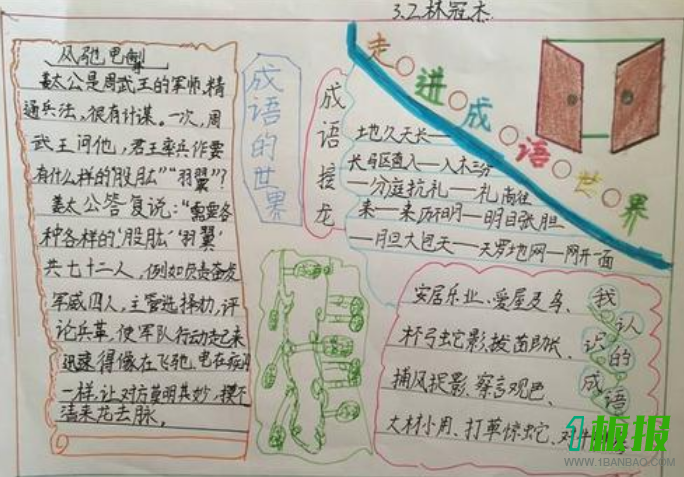 3.2林冠杰
风驰电掣
姜太公是周武王的军师,精
通兵法,很有计谋。一次,周
武王问他,君王率兵作要
有什么样的"股肱""羽翼"?
姜太公答复说:"需要各
种各样的'股肱''羽翼'
共七十二人,例如负责奋发
军威四人,主管选择劲,评
论兵革,使军队行动起来
迅速得像在飞驰,电在疾闪
一样,让对方莫明其妙,摸不
清来龙去脉。
成语的世界
成语接龙
走进成语世界
地久天长——
长马区直入——入木三分
——分庭抗礼——礼尚往
来——来历明——明目张胆
——月旦大包天——天罗地网——网开一面
我认识的成语
安居乐业、爱屋及乌、
杯弓蛇影、拔苗助长、
捕风捉影、察言观色、
大材小用、打草惊蛇、对牛
1板报
WWW.1BANBAO.COM